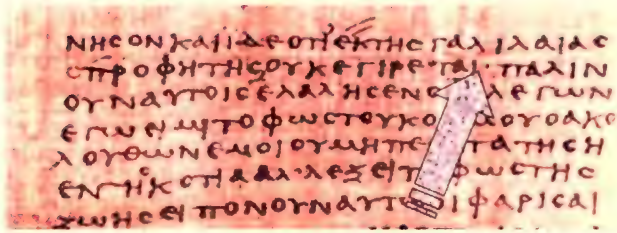 ΝΗϹΟΝΚΑΙΙΔΕΟΤΙΕΚΤΗϹΓΑΛΙΛΑΙΑϹ
ΟΠΡΟΦΗΤΗϹΟΥΚΕΓΙΡΕΤΑΙ·ΠΑΛΙΝ
ΟΥΝΑΥΤΟΙϹΕΛΑΛΗϹΕΝΟ ΛΕΓΩΝ
ΕΓΩΕΙΜΙΤΟΦΩϹΤΟΥΚΟ ΟΥΟΑΚΟ
ΛΟΥΘΩΝΕΜΟΙΟΥΜΗΠΕ ΤΑΤΗϹΗ
ΕΝΤΗϹΚΟΤΙΑΑΛ·ΛΕΞΕΙΤ ΦΩϹΤΗϹ
ΖΩΗϹΕΙΠΟΝΟΥΝΑΥΤ ΙΦΑΡΙϹΑΙ